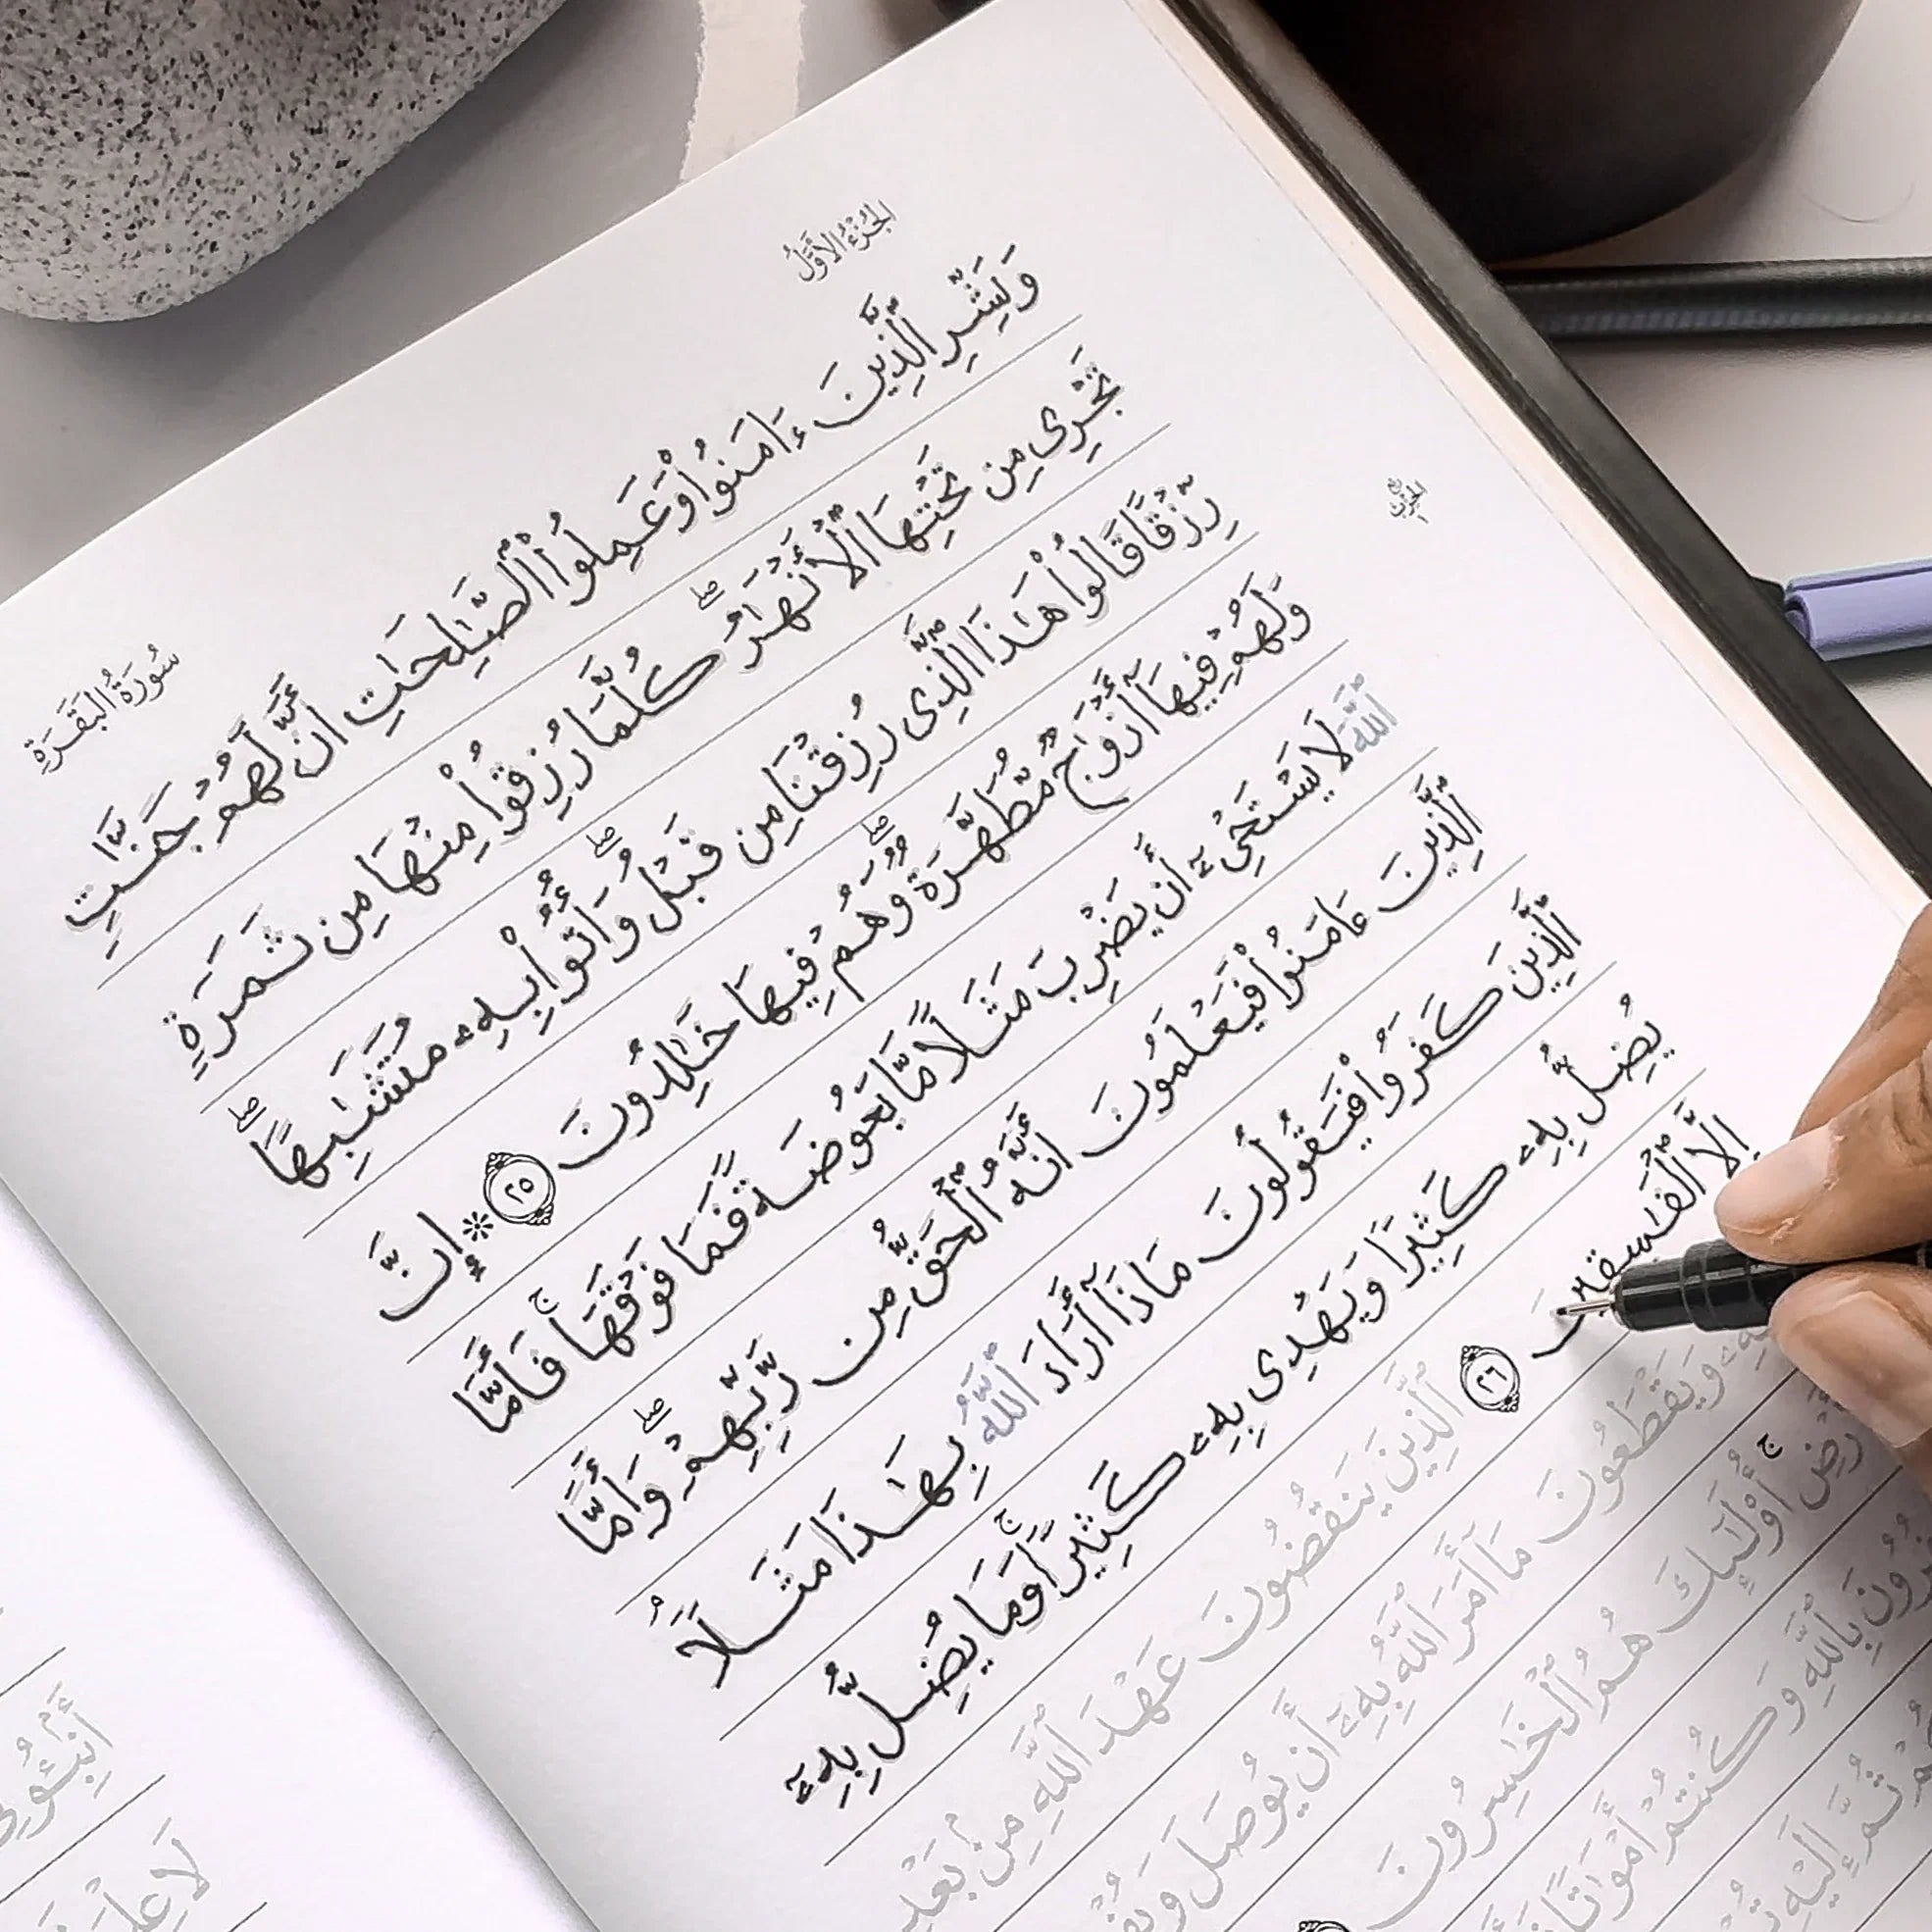 الجُزْءُ الأَوَّلُ
سُورَةُ البَقَرَةِ
وَبَشِّرِ ٱلَّذِينَ ءَامَنُوا۟ وَعَمِلُوا۟ ٱلصَّـٰلِحَـٰتِ أَنَّ لَهُمْ جَنَّـٰتٍ
تَجْرِى مِن تَحْتِهَا ٱلْأَنْهَـٰرُ ۖ كُلَّمَا رُزِقُوا۟ مِنْهَا مِن ثَمَرَةٍ
رِّزْقًا قَالُوا۟ هَـٰذَا ٱلَّذِى رُزِقْنَا مِن قَبْلُ ۖ وَأُتُوا۟ بِهِۦ مُتَشَـٰبِهًا ۖ
وَلَهُمْ فِيهَآ أَزْوَٰجٌ مُّطَهَّرَةٌ ۖ وَهُمْ فِيهَا خَـٰلِدُونَ ٢٥ * إِنَّ
ٱللَّهَ لَا يَسْتَحْىِۦٓ أَن يَضْرِبَ مَثَلًا مَّا بَعُوضَةً فَمَا فَوْقَهَا ۚ فَأَمَّا
ٱلَّذِينَ ءَامَنُوا۟ فَيَعْلَمُونَ أَنَّهُ ٱلْحَقُّ مِن رَّبِّهِمْ ۖ وَأَمَّا
ٱلَّذِينَ كَفَرُوا۟ فَيَقُولُونَ مَاذَآ أَرَادَ ٱللَّهُ بِهَـٰذَا مَثَلًا ۘ
يُضِلُّ بِهِۦ كَثِيرًا وَيَهْدِى بِهِۦ كَثِيرًا ۚ وَمَا يُضِلُّ بِهِۦٓ
إِلَّا ٱلْفَـٰسِقِينَ ٢٦ ٱلَّذِينَ يَنقُضُونَ عَهْدَ ٱللَّهِ مِنۢ بَعْدِ
وَيَقْطَعُونَ مَآ أَمَرَ ٱللَّهُ بِهِۦٓ أَن يُوصَلَ
أُو۟لَـٰٓئِكَ هُمُ ٱلْخَـٰسِرُونَ
بِٱللَّهِ وَكُنتُمْ أَمْوَٰتًا
ثُمَّ إِلَيْهِ